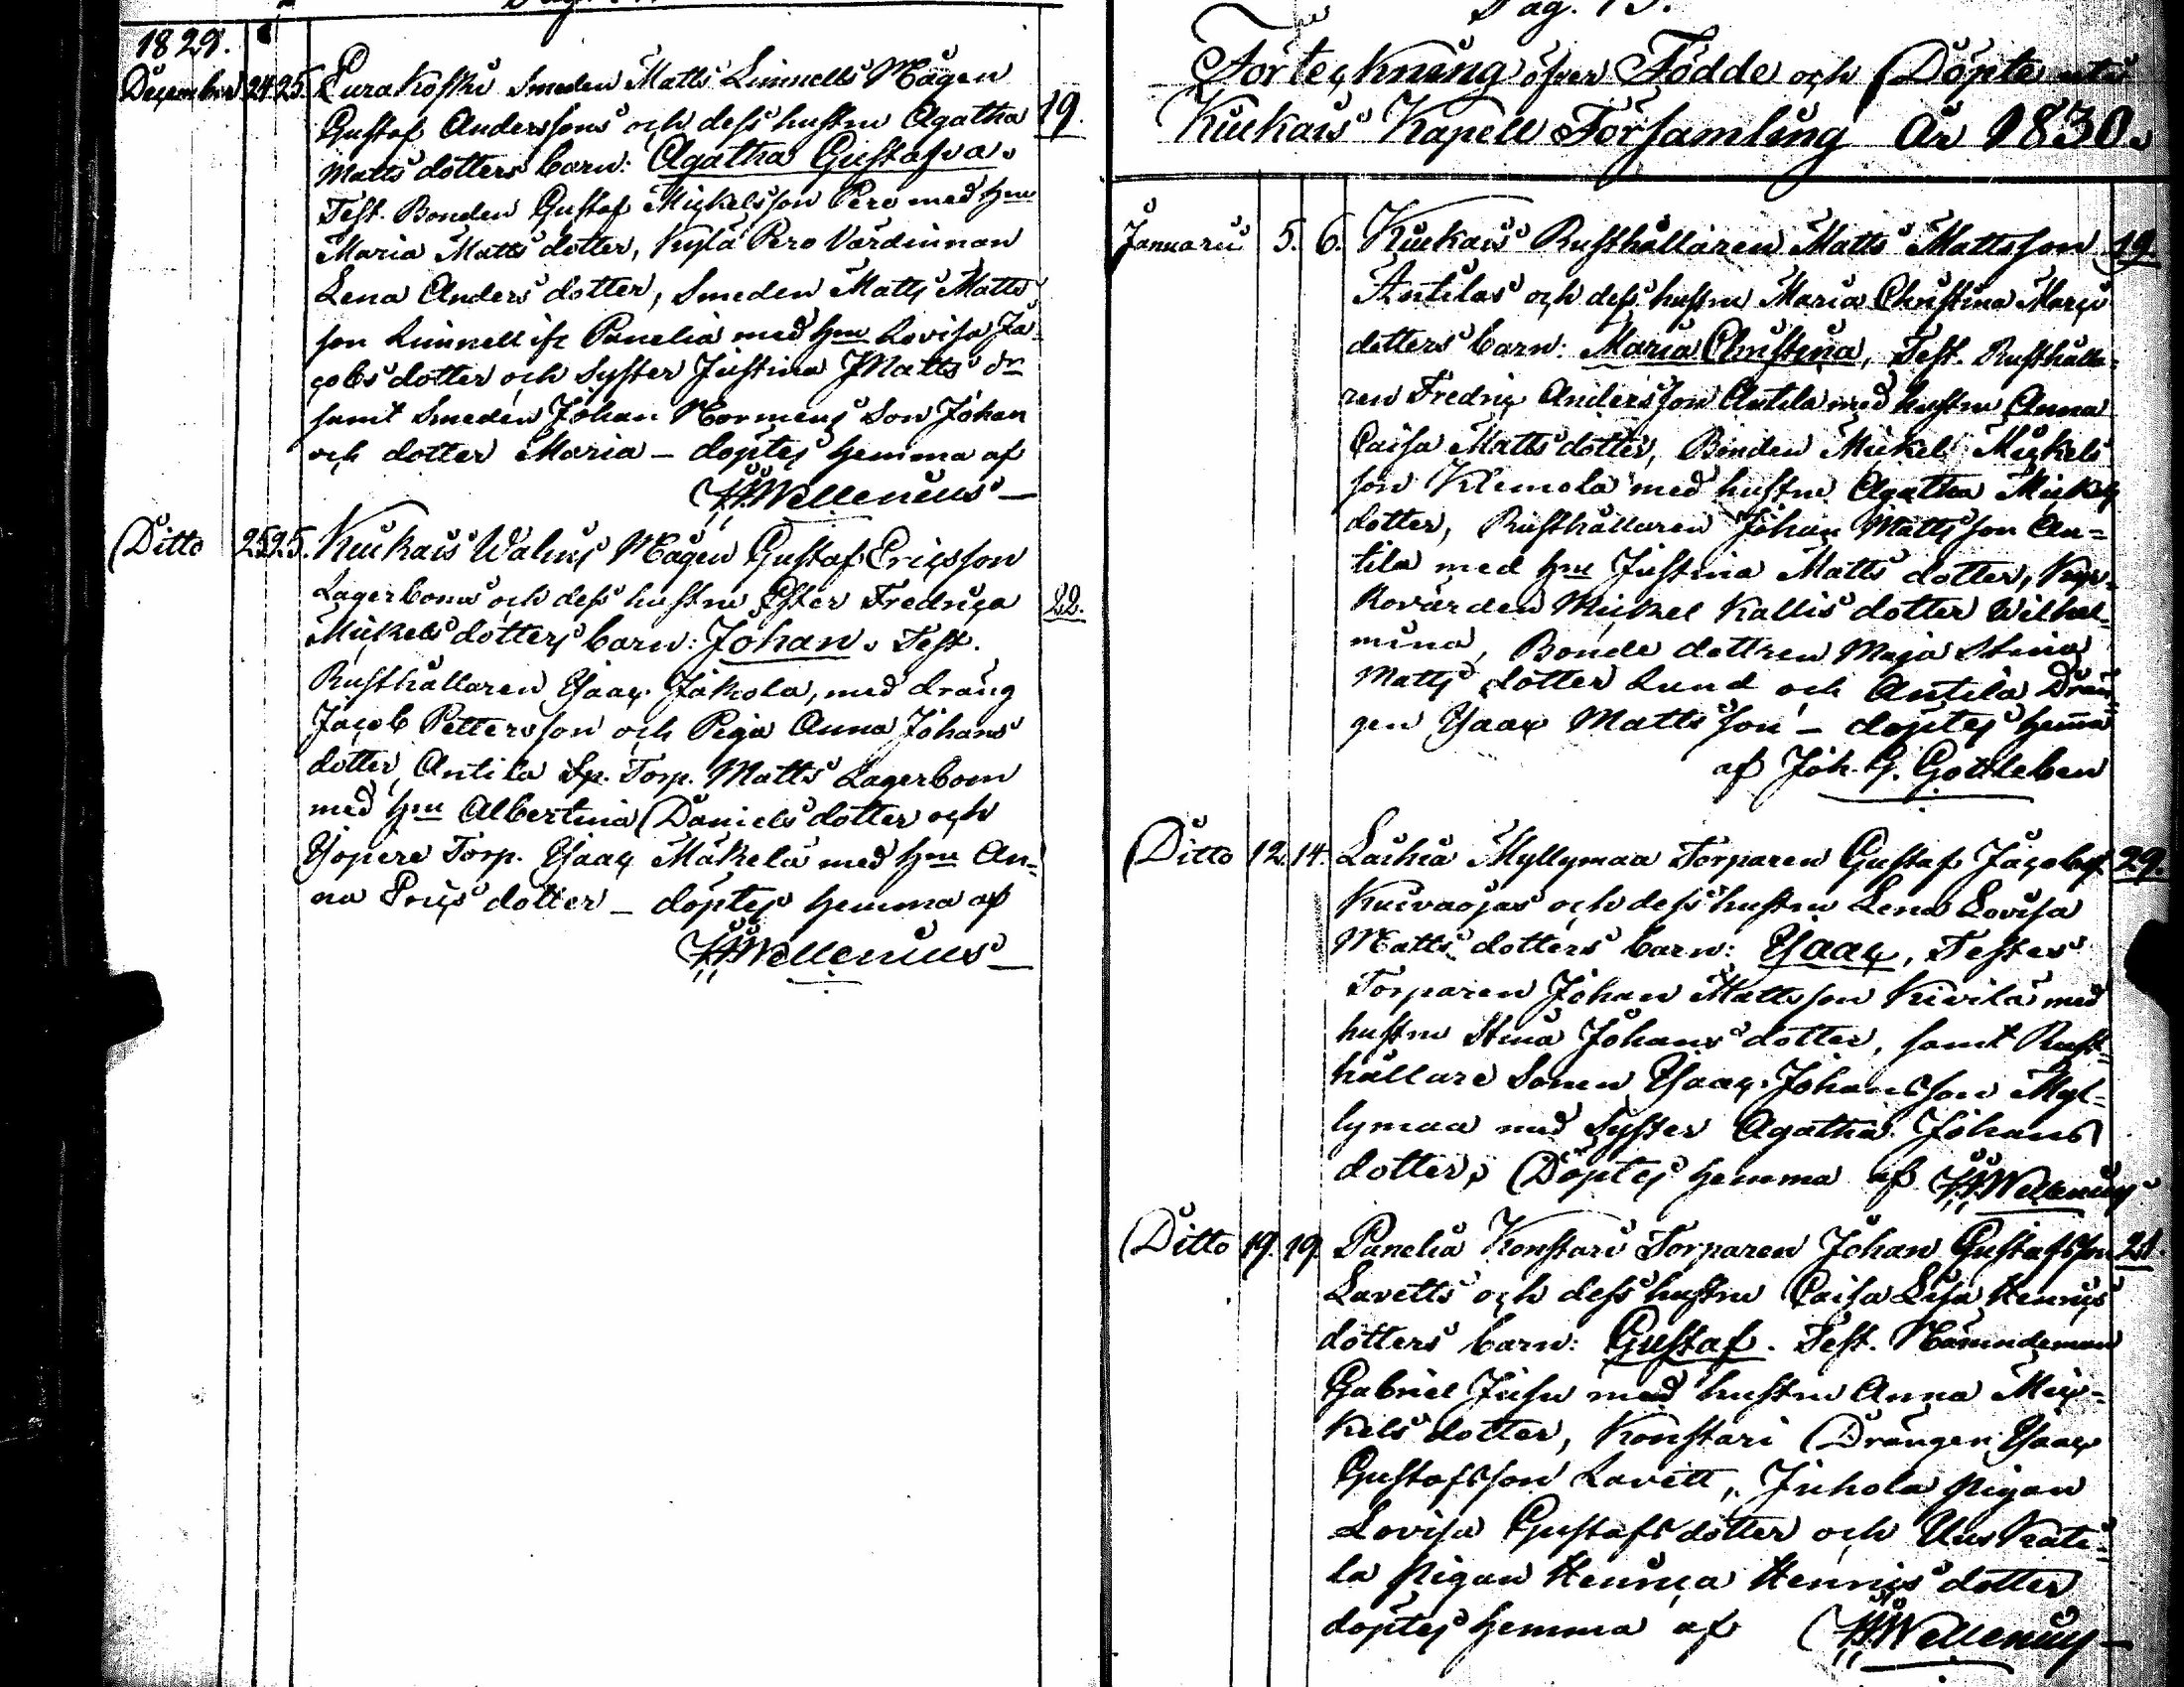 1829.
December 24. 25. Eurakoski Smeden Matts Linnells Mågen
Gustaf Anderssons och dess hustru Agatha 19.
Matts dotters barn: Agatha Gustafva.
Test. Bonden Gustaf Mickelsson Pero med Hru
Maria Matts dotter, Pero Värdinnan
Lena Anders dotter, Smeden Matts Matts
son Linnell ifr Panelia med Hru Lovisa Ja=
cobs dotter och Syster Justina Matts dr
samt Smeden Johan Normens Son Johan
och dotter Maria – döptes hemma af
Wellenius –
Ditto 25. 25. Kiukais Mågen Gustaf Ericsson
Lagerboms och dess hustru Ester Fredrica 22.
Mickels dotters barn: Johan. Test.
Rusthållaren Isaac Jakola, med dräng
Jacob Pettersson och Piga Anna Johans
dotter, Antila Sp. Torp. Matts Lagerbom
med Hru Albertina Daniels dotter och
Torp. Isaac Mäkelä med Hru An=
na Erics dotter – döptes hemma af
Wellenius –
Pag. 13.
Förteckning öfver Födde och Döpte uti
Kiukais Kapell Församling År 1830.
Januarii 5. 6. Kiukais Rusthållaren Matts Mattsson 19.
Antilas och dess hustru Maria Christina Marci
dotters barn: Maria Christina, Test. Rusthålla=
ren Fredric Andersson Antila med hustru Anna
Caisa Matts dotter, Bonden Mickel Mickels
son Klemola med hustru Agatha Mickels
dotter, Rusthållaren Johan Mattsson An=
tila med Hru Justina Matts dotter,
Mickel Kallis dotter Wilhel=
mina, Bonde dottren Maja Stina
Matts dotter Lund och Antila Drän
gen Isaac Matts son – döptes hemma
af Joh. G. Gottleben
Ditto 12. 14. Laihia Myllymaa Torparen Gustaf Jacobss. 29.
Kuivaojas och dess hustru Lena Lovisa
Matts dotters barn: Isaac, Testes
Torparen Johan Mattsson Kivilä med
hustru Stina Johans dotter, samt Rust=
hållare Sonen Isaac Johansson Myl=
lymaa med Syster Agatha Johans
dotter, Döptes hemma af Wellenius
Ditto 19. 19. Panelia Konstari Torparen Johan Gustafsson 21.
Lavetts och dess hustru Caisa Lisa Henrics
dotters barn: Gustaf. Test. Nämndeman
Gabriel Jusu med hustru Anna Mic=
kels dotter, Konstari Drängen Isaac
Gustafsson Lavett, Juhola pigan
Lovisa Gustafs dotter och
la pigan Henrica Henrics dotter
döptes hemma af Wellenius –